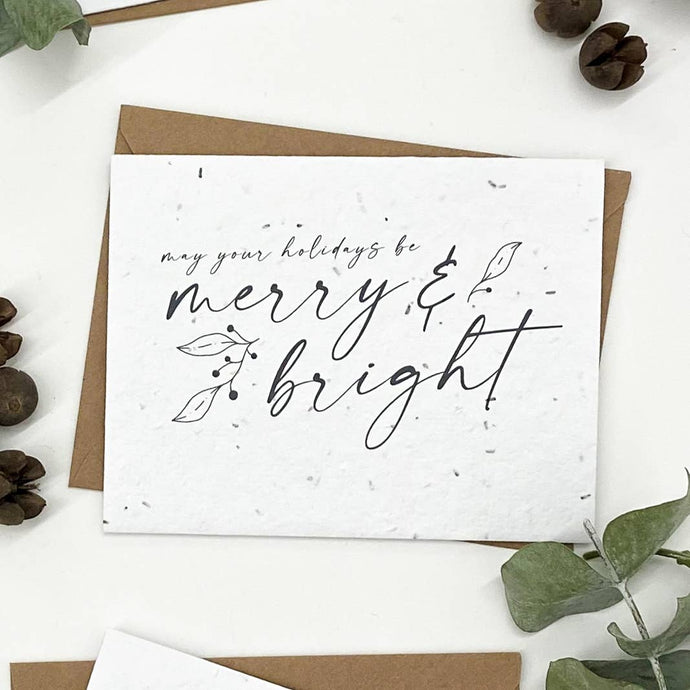 may your holidays be
merry &
bright